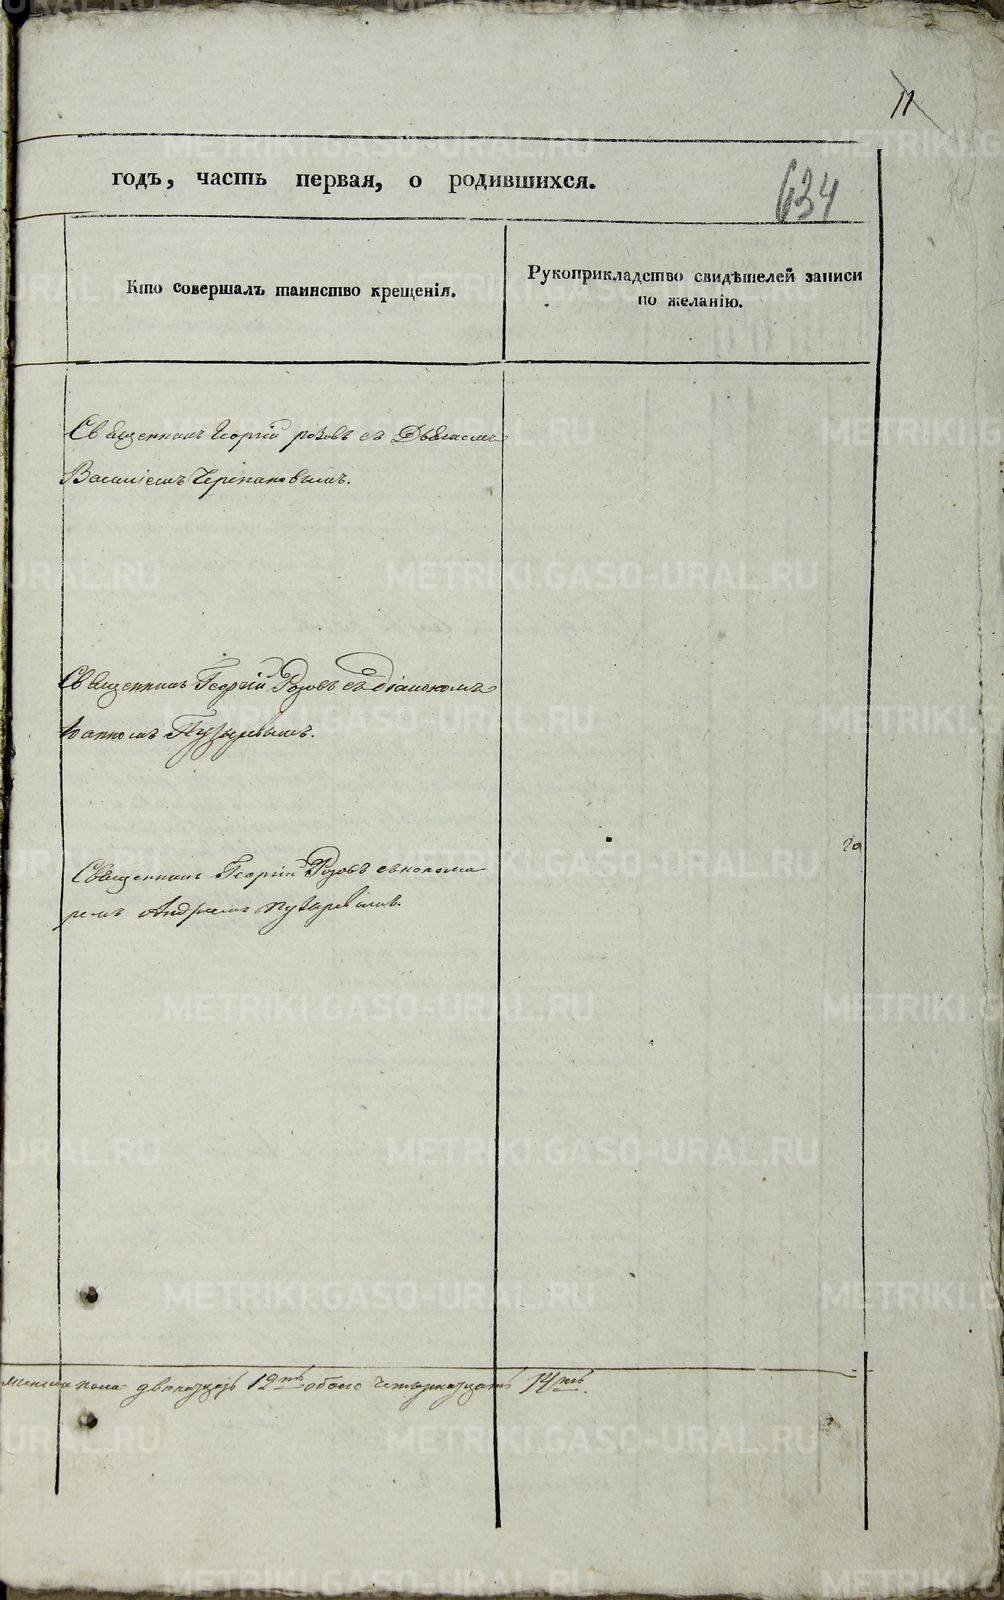 11
годъ, часть первая, о родившихся.
634
Кто совершалъ таинство крещенія.
Рукоприкладство свидѣтелей записи
по желанію.
Священникъ Георгій розовъ съ Дьякомъ
Василіемъ Черепановымъ.
Священникъ Георгій Розовъ съ діакономъ
Іоанномъ Пузыревымъ.
Священникъ Георгій Розовъ съ понома
ремъ Андреемъ пузыревымъ.
пола двенатцеть 12ть обоего четырнатцать 14ть.
METRIKI.GASO-URAL.RU